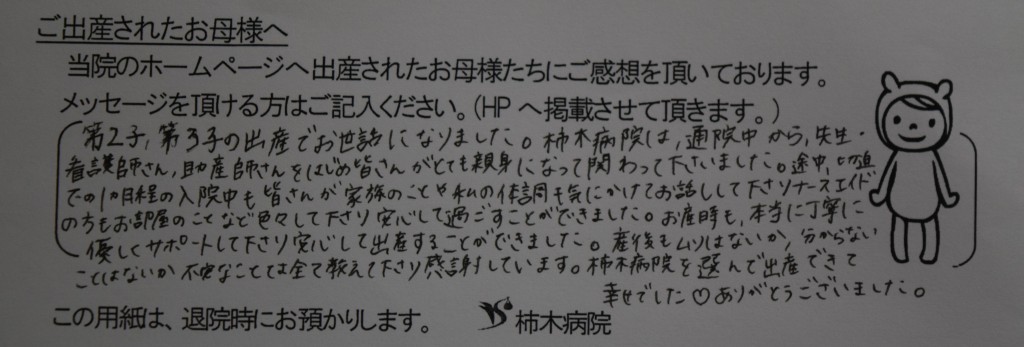 ご出産されたお母様へ
当院のホームページへ出産されたお母様たちにご感想を頂いております。
メッセージを頂ける方はご記入ください。(HPへ掲載させて頂きます。)
第2子,第3子の出産でお世話になりました。柿木病院は,通院中から,先生・
看護師さん,助産師さんをはじめ皆さんがとても親身になって関わって下さいました。途中,切迫
での1ヶ月程の入院中も皆さんが家族のことや私の体調も気にかけてお話しして下さりナースエイド
の方もお部屋のことなど色々して下さり安心して過ごすことができました。お産時も,本当に丁寧に
優しくサポートして下さり安心して出産することができました。産後もムリはないか,分からない
ことはないか不安なことは全て教えて下さり感謝しています。柿木病院を選んで出産できて
幸せでした♡ありがとうございました。
この用紙は、退院時にお預かりします。 柿木病院